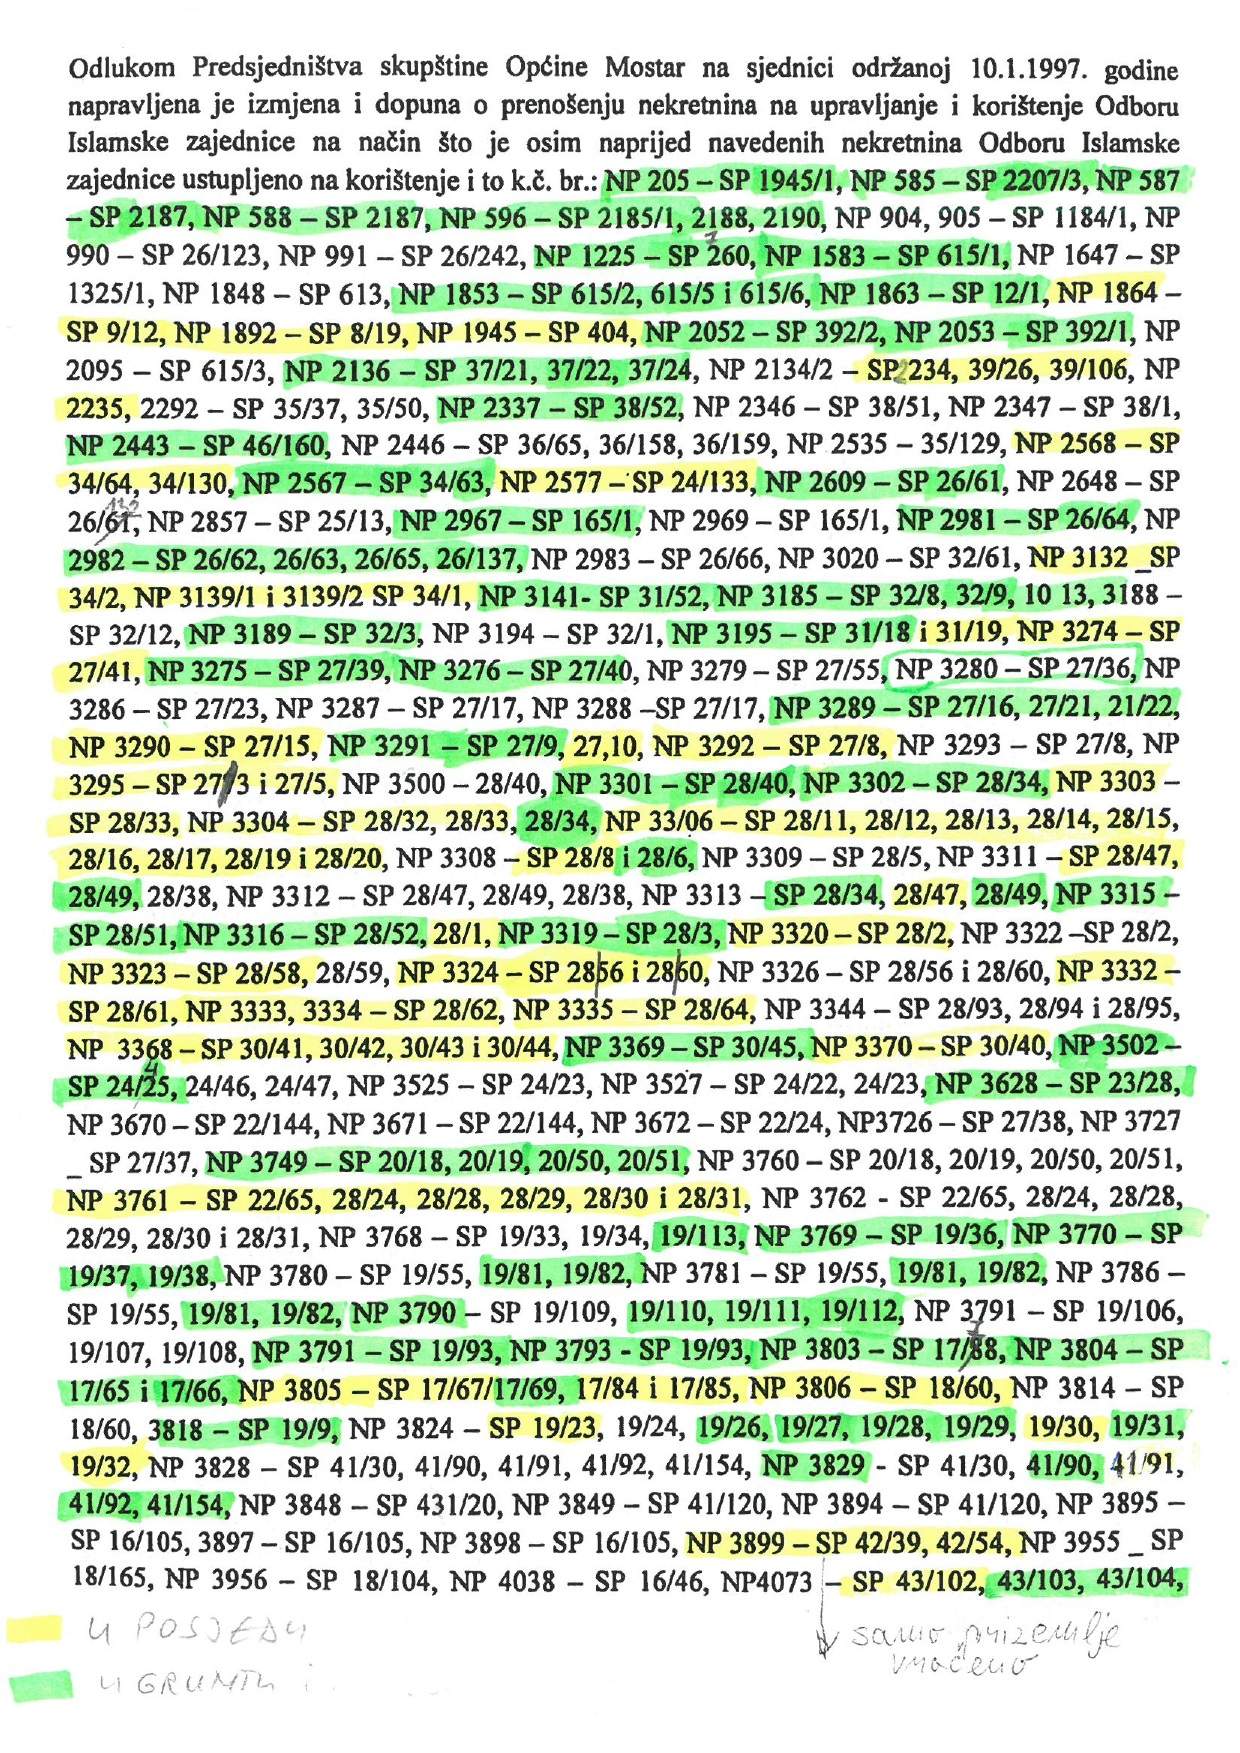 Odlukom Predsjedništva skupštine Općine Mostar na sjednici održanoj 10.1.1997. godine
napravljena je izmjena i dopuna o prenošenju nekretnina na upravljanje i korištenje Odboru
Islamske zajednice na način što je osim naprijed navedenih nekretnina Odboru Islamske
zajednice ustupljeno na korištenje i to k.č. br.: NP 205 – SP 1945/1, NP 585 – SP 2207/3, NP 587
– SP 2187, NP 588 – SP 2187, NP 596 – SP 2185/1, 2188, 2190, NP 904, 905 – SP 1184/1, NP
990 – SP 26/123, NP 991 – SP 26/242, NP 1225 – SP 260, NP 1583 – SP 615/1, NP 1647 – SP
1325/1, NP 1848 – SP 613, NP 1853 – SP 615/2, 615/5 i 615/6, NP 1863 – SP 12/1, NP 1864 –
SP 9/12, NP 1892 – SP 8/19, NP 1945 – SP 404, NP 2052 – SP 392/2, NP 2053 – SP 392/1, NP
2095 – SP 615/3, NP 2136 – SP 37/21, 37/22, 37/24, NP 2134/2 – SP 2234, 39/26, 39/106, NP
2235, 2292 – SP 35/37, 35/50, NP 2337 – SP 38/52, NP 2346 – SP 38/51, NP 2347 – SP 38/1,
NP 2443 – SP 46/160, NP 2446 – SP 36/65, 36/158, 36/159, NP 2535 – 35/129, NP 2568 – SP
34/64, 34/130, NP 2567 – SP 34/63, NP 2577 – SP 24/133, NP 2609 – SP 26/61, NP 2648 – SP
26/61, NP 2857 – SP 25/13, NP 2967 – SP 165/1, NP 2969 – SP 165/1, NP 2981 – SP 26/64, NP
2982 – SP 26/62, 26/63, 26/65, 26/137, NP 2983 – SP 26/66, NP 3020 – SP 32/61, NP 3132 _SP
34/2, NP 3139/1 i 3139/2 SP 34/1, NP 3141- SP 31/52, NP 3185 – SP 32/8, 32/9, 10 13, 3188 –
SP 32/12, NP 3189 – SP 32/3, NP 3194 – SP 32/1, NP 3195 – SP 31/18 i 31/19, NP 3274 – SP
27/41, NP 3275 – SP 27/39, NP 3276 – SP 27/40, NP 3279 – SP 27/55, NP 3280 – SP 27/36, NP
3286 – SP 27/23, NP 3287 – SP 27/17, NP 3288 –SP 27/17, NP 3289 – SP 27/16, 27/21, 21/22,
NP 3290 – SP 27/15, NP 3291 – SP 27/9, 27,10, NP 3292 – SP 27/8, NP 3293 – SP 27/8, NP
3295 – SP 27/3 i 27/5, NP 3500 – 28/40, NP 3301 – SP 28/40, NP 3302 – SP 28/34, NP 3303 –
SP 28/33, NP 3304 – SP 28/32, 28/33, 28/34, NP 33/06 – SP 28/11, 28/12, 28/13, 28/14, 28/15,
28/16, 28/17, 28/19 i 28/20, NP 3308 – SP 28/8 i 28/6, NP 3309 – SP 28/5, NP 3311 – SP 28/47,
28/49, 28/38, NP 3312 – SP 28/47, 28/49, 28/38, NP 3313 – SP 28/34, 28/47, 28/49, NP 3315 –
SP 28/51, NP 3316 – SP 28/52, 28/1, NP 3319 – SP 28/3, NP 3320 – SP 28/2, NP 3322 –SP 28/2,
NP 3323 – SP 28/58, 28/59, NP 3324 – SP 28/56 i 28/60, NP 3326 – SP 28/56 i 28/60, NP 3332 –
SP 28/61, NP 3333, 3334 – SP 28/62, NP 3335 – SP 28/64, NP 3344 – SP 28/93, 28/94 i 28/95,
NP 3368 – SP 30/41, 30/42, 30/43 i 30/44, NP 3369 – SP 30/45, NP 3370 – SP 30/40, NP 3502 –
SP 24/25, 24/46, 24/47, NP 3525 – SP 24/23, NP 3527 – SP 24/22, 24/23, NP 3628 – SP 23/28,
NP 3670 – SP 22/144, NP 3671 – SP 22/144, NP 3672 – SP 22/24, NP3726 – SP 27/38, NP 3727
_ SP 27/37, NP 3749 – SP 20/18, 20/19, 20/50, 20/51, NP 3760 – SP 20/18, 20/19, 20/50, 20/51,
NP 3761 – SP 22/65, 28/24, 28/28, 28/29, 28/30 i 28/31, NP 3762 - SP 22/65, 28/24, 28/28,
28/29, 28/30 i 28/31, NP 3768 – SP 19/33, 19/34, 19/113, NP 3769 – SP 19/36, NP 3770 – SP
19/37, 19/38, NP 3780 – SP 19/55, 19/81, 19/82, NP 3781 – SP 19/55, 19/81, 19/82, NP 3786 –
SP 19/55, 19/81, 19/82, NP 3790 – SP 19/109, 19/110, 19/111, 19/112, NP 3791 – SP 19/106,
19/107, 19/108, NP 3791 – SP 19/93, NP 3793 - SP 19/93, NP 3803 – SP 17/88, NP 3804 – SP
17/65 i 17/66, NP 3805 – SP 17/67/17/69, 17/84 i 17/85, NP 3806 – SP 18/60, NP 3814 – SP
18/60, 3818 – SP 19/9, NP 3824 – SP 19/23, 19/24, 19/26, 19/27, 19/28, 19/29, 19/30, 19/31,
19/32, NP 3828 – SP 41/30, 41/90, 41/91, 41/92, 41/154, NP 3829 - SP 41/30, 41/90, 41/91,
41/92, 41/154, NP 3848 – SP 431/20, NP 3849 – SP 41/120, NP 3894 – SP 41/120, NP 3895 –
SP 16/105, 3897 – SP 16/105, NP 3898 – SP 16/105, NP 3899 – SP 42/39, 42/54, NP 3955 _ SP
18/165, NP 3956 – SP 18/104, NP 4038 – SP 16/46, NP4073 – SP 43/102, 43/103, 43/104,
U POSJEDU
samo prizemlje
vraćeno
U GRUNTU i